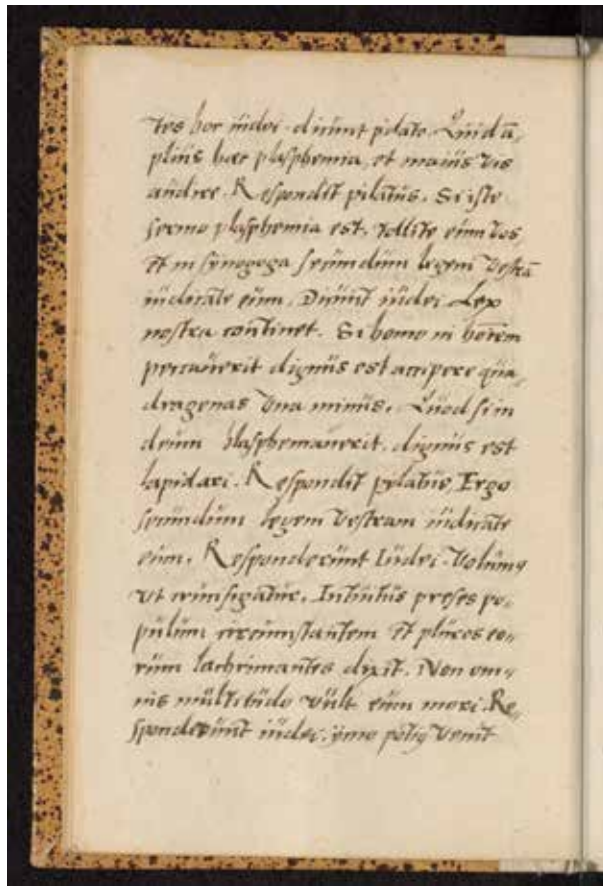 tes hoc iudei dicunt pilato. Quid ā,
plius hac plasphemia, et maius vis
audire. Respondit pilatus. Si iste
sermo plasphemia est, tollite eum vos
et in synogoga secundum legem vestrā
iudicate eum. Dicunt iudei. Lex
nostra continet. Si homo in hoīem
peccauerit dignus est accipere qua,
dragenas vna minus. Quod si in
deum blasphemauerit, dignus est
lapidari. Respondit pylatus, Ergo
secundum legem vestram iudicate
eum. Responderunt Iudei. Volumꝰ
vt crucifigatur. Intuitus preses po,
pulum circumstantem et plures eo,,
rum lachrimantes dixit. Non om,
nis multitudo vult eum mori. Re,
sponderunt iudei, ymo potiꝰ venit